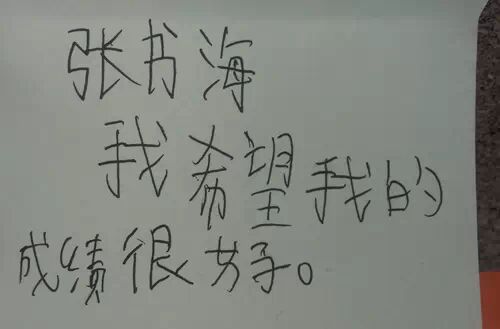 张书海
我希望我的
成绩很好。